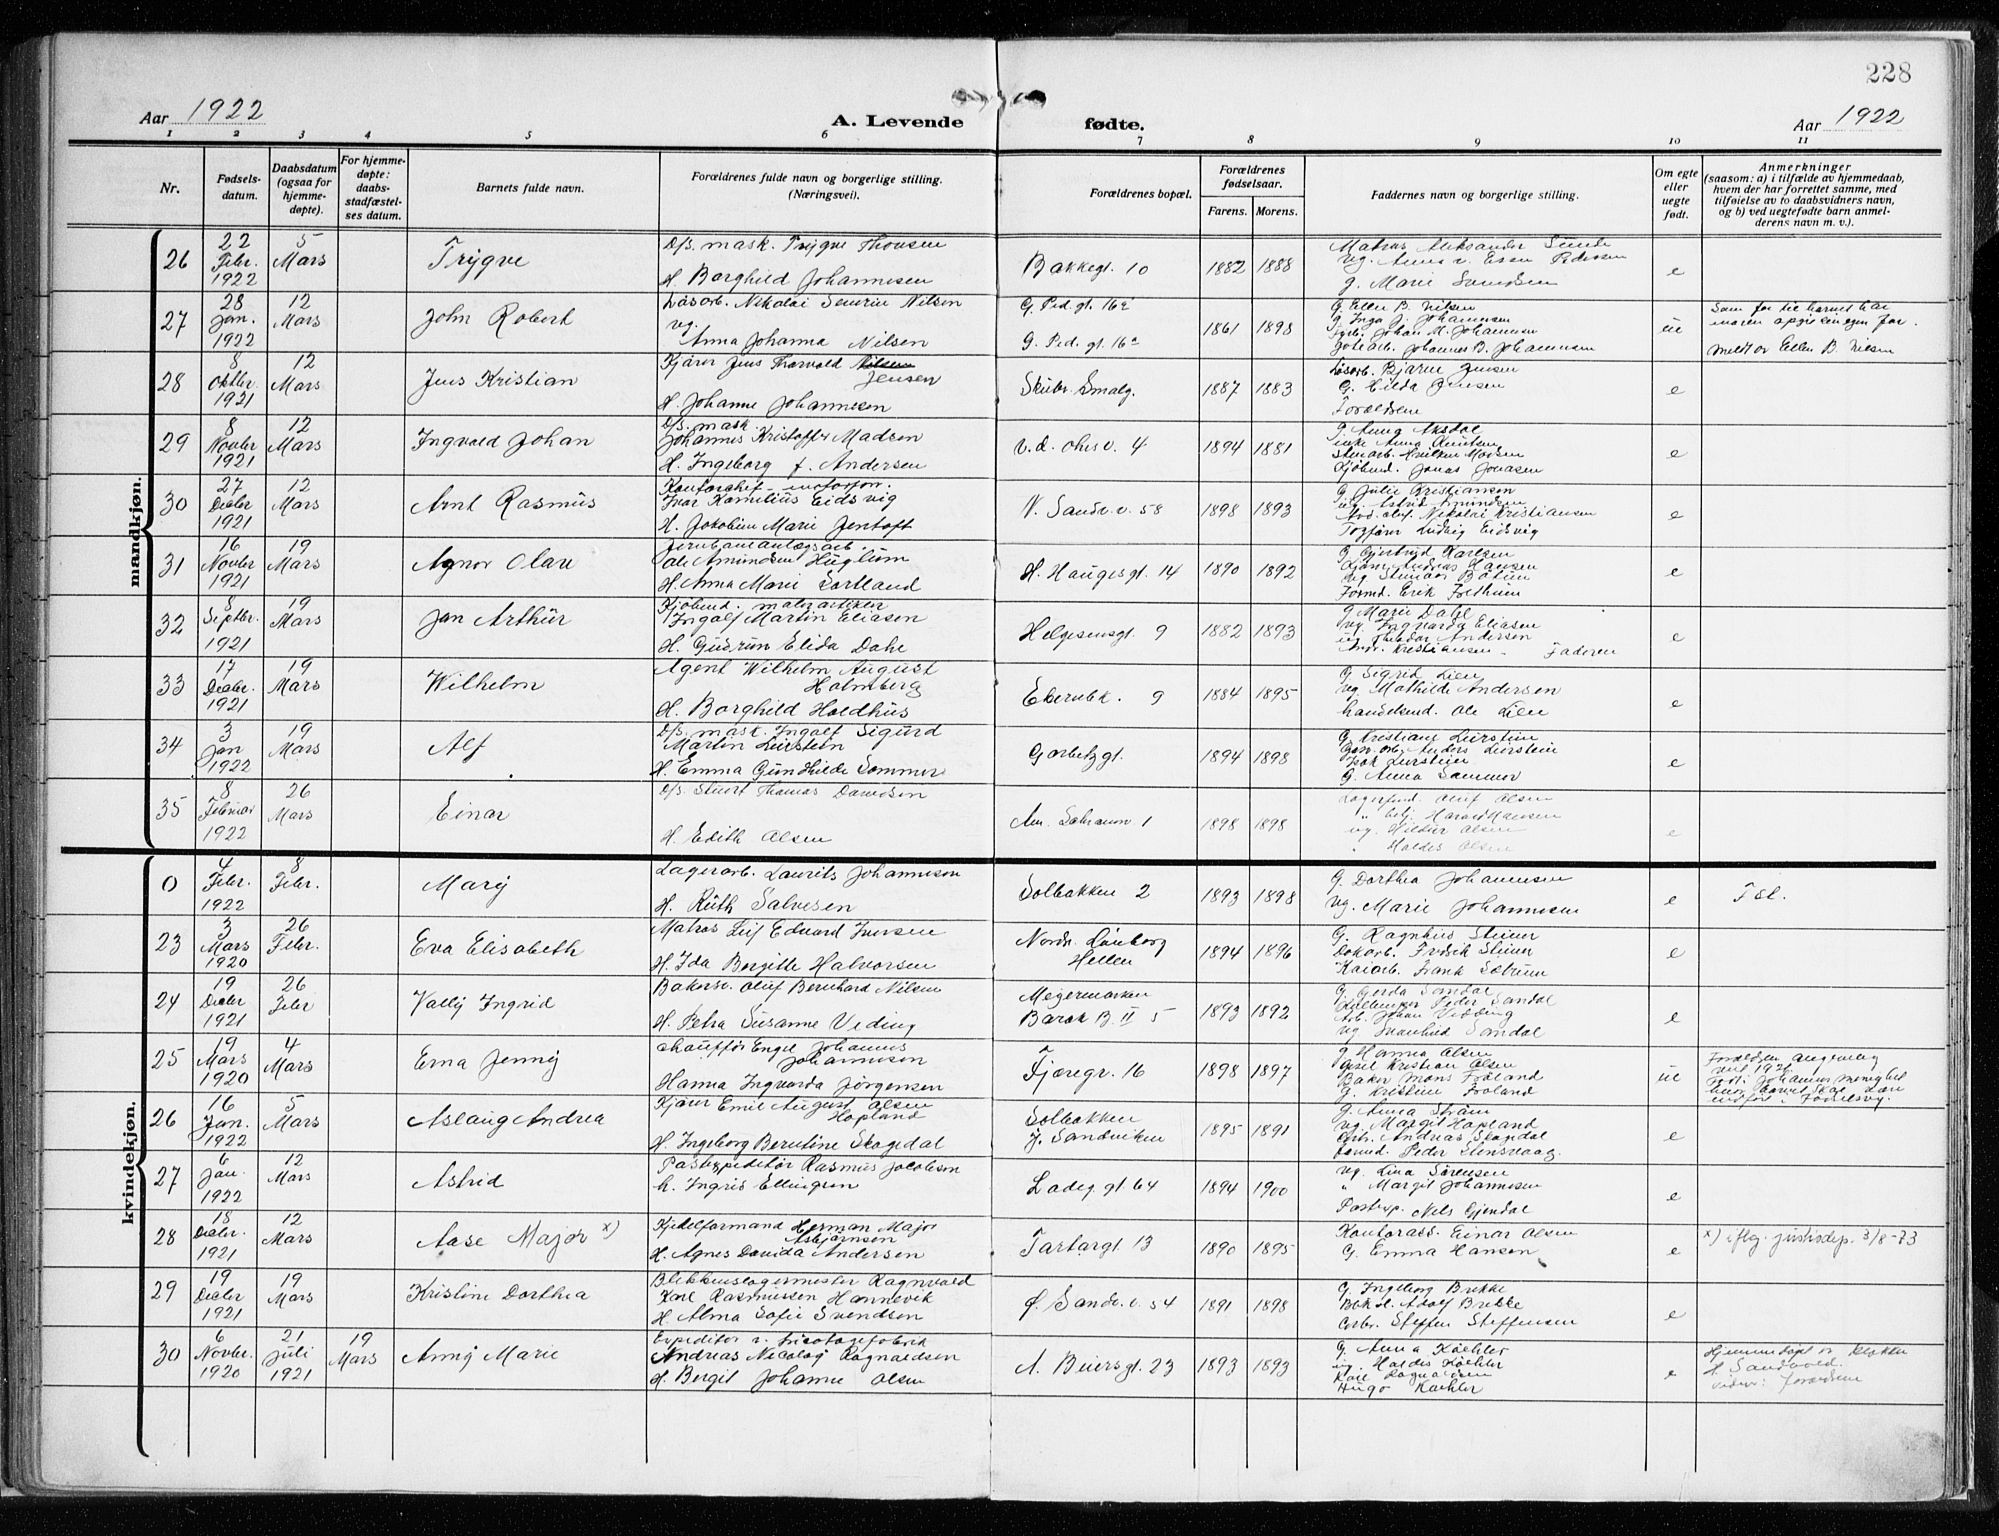 228
Aar 1922
A. Levende fødte.
Aar 1922
1 2 3 4 5 6 7 8 9 10 11
Nr.
Fødsels-
datum.
Daabsdatum
(ogsaa for
hjemme-
døpte).
For hjemme-
døpte:
daabs-
stadfæstel-
ses datum.
Barnets fulde navn.
Forældrenes fulde navn og borgerlige stilling.
(Næringsvei).
Forældrenes bopæl.
Forældrenes
fødselsaar.
Farens. Morens.
Faddernes navn og borgerlige stilling.
Om egte
eller
uegte
født.
Anmerkninger
(saasom: a) i tilfælde av hjemmedaab,
hvem der har forrettet samme, med
tilføielse av to daabsvidners navn,
og b) ved uegtefødte barn anmel-
derens navn m. v.).
mandkjøn.
26
22
Febr.
1922
5
Mars
Trygve
D/s. mask. Trygve Thorsen
H. Borghild Johannesen
Bakkegt. 10
1882 1888
g. Marie
e
27
28
Jan.
1922
12
Mars
John Robert
Løsarb. Nikolai Severin Nilsen
ug.
Anna Johanna Nilsen
G. Ped. gt. 16a
G. Ped. gt. 16a
1861 1898
G. Ellen B. Nilsen
G. Inga J. Johannesen
Johan M. Johannesen
Johannes B. Johannesen
ue
Som far til barnet har
moren opgit sin egen far.
Meldt av Ellen B. Nilsen
28
8
Oktbr.
1921
12
Mars
Jens Kristian
Kjører Jens Thorvald Nilsen
Jensen
H. Johanne Johannesen
Skuter Smalg.
1887 1883
Løsarb. Bjarne Jensen
G. Hilda Jensen
Forældrene
e
29
8
Novbr
1921
12
Mars
Ingvald Johan
D/s. mask.
Johannes Kristoffer Madsen
H. Ingeborg f. Andersen
v.d. Ohrs v. 4
1894 1881
G. Anna Aksdal
enke Anna Knutsen
Jonas Jonasen
e
30
27
Decbr
1921
12
Mars
Arnt Rasmus
Ivar Kornelius Eidsvig
H. Jakobine Marie Jentoft
N. Sandv. v. 58
1898 1893
G. Julie Kristiansen
ug. Astrid Amundsen
Nikolai Kristiansen
Togfører Ludvig Eidsvig
e
31
16
Novbr
1921
19
Mars
Agnar Olav
Jernbaneanlægsarb.
Ole Amundsen Huglum
H. Anna Marie Sortland
H. Haugesgt. 14
1890 1892
G. Gjertrud Karlsen
Andreas Hansen
Formd. Erik
e
32
8
Septbr.
1921
19
Mars
Jan Arthur
Kjøbmd. malerartikler
Ingolf Martin Eliasen
H. Gudrun Elida Dahl
Helgesensgt. 9
1882 1893
G. Marie Dahl
ug. Ingvarda Eliasen
Andersen
Kristiansen - Faderen
e
33
17
Decbr.
1921
19
Mars
Wilhelm
Agent Wilhelm August
Holmberg
H. Borghild Holdhus
9
1884 1895
G. Sigrid Lien
ug. Mathilde Andersen
handelsmd. Ole Lien
e
34
3
Jan
1922
19
Mars
Alf
D/s. mask. Ingolf Sigurd
Martin Leirstein
H. Emma Gundhilde Sommer
1894 1898
G. Kristiane Leirstein
Anders Leirstein
Leirstein
G. Anna Sommer
e
35
8
Februar
1922
26
Mars
Einar
D/s. Stuert Thomas Davidsen
H. Edith Olsen
1
1898 1898
Lagerfmd. Oluf Olsen
" betj. Harald Hansen
ug. Hildur Olsen
" Haldis Olsen
e
kvindekjøn.
0
4
Febr.
1922
8
Febr.
Mary
Lagerarb. Laurits Johannesen
H. Ruth Salvesen
Solbakken 2
1893 1898
G. Dorthea Johannesen
ug. Marie Johannesen
e
Fst.
23
3
Mars
1920
26
Febr.
Eva Elisabeth
Matros Leif Edvard Iversen
H. Ida Bergitte Halvorsen
Nordr. Lønborg
Hellen
1894 1896
G. Ragnhus Steiner
Dokarb. Fredrik Steiner
Kaiarb. Frank Sætrum
e
24
19
Decbr
1921
26
Febr
Vally Ingrid
Bakersv. Oluf Bernhard Nilsen
H. Petra Susanne Veding
Meyermarken
Barak B. II 5
1893 1892
G. Gerda Sandal
Peder Sandal
Arb. Johan
ug Svanhild Sandal
e
25
19
Mars
1920
4
Mars
Erna Jenny
Chauffør Engel Johannes
Johannesen
Hanna Ingvarda Jørgensen
Fjæregr. 16
1898 1897
G. Hanna Olsen
Kristian Olsen
Baker Mons Froland
G. Kristine Froland
ue
Forældrene
26
16
Jan.
1922
5
Mars
Aslaug Andrea
Kjører Emil August Olsen
Hopland
H. Ingeborg Berntine Skagedal
Solbakken
Y. Sandviken
1895 1891
G. Anna Strøm
ug. Margit Hopland
Arb. Andreas Skagedal
Formd. Peder Stensvaag
e
27
6
Jan.
1922
12
Mars
Astrid
Postexpeditør Rasmus Jacobsen
h. Ingris Ellingsen
Ladeg. gt. 64
1894 1900
ug. Lina Sørensen
" Margit Johannesen
Postexp. Nils Gjendal
e
28
18
Decbr.
1921
12
Mars
Aase Major x)
Kjedelformand Herman Major
Asbjørnsen
H. Agnes Davida Andersen
Tartargt. 13
1890 1895
Kontorass. Einar Olsen
G. Emma Hansen
e
x) iflg. justisdep. 3/8-73
29
19
Decbr
1921
19
Mars
Kristine Dorthea
Blikkenslagermester Ragnvald
Karl Rasmussen Hannevik
H. Alma Sofie Svendsen
Ø. Sandv. v. 54
1891 1898
G. Ingeborg Brekke
Adolf Brekke
Steffen Steffensen
e
30
6
Novbr.
1920
21
Juli
1921
19
Mars
Anny Marie
Expeditør v. tricotagefabrik
Andreas Nicolay Ragnaldsen
H. Bergit Johanne Olsen
A. Beiersgt. 23
1893 1893
G. Anna Køehler
ug. Haldis Køehler
Karl Ragnaldsen
Hugo Køehler
e
Hjemmedøpt av
H. Sandvold.
Vidner: Forældrene